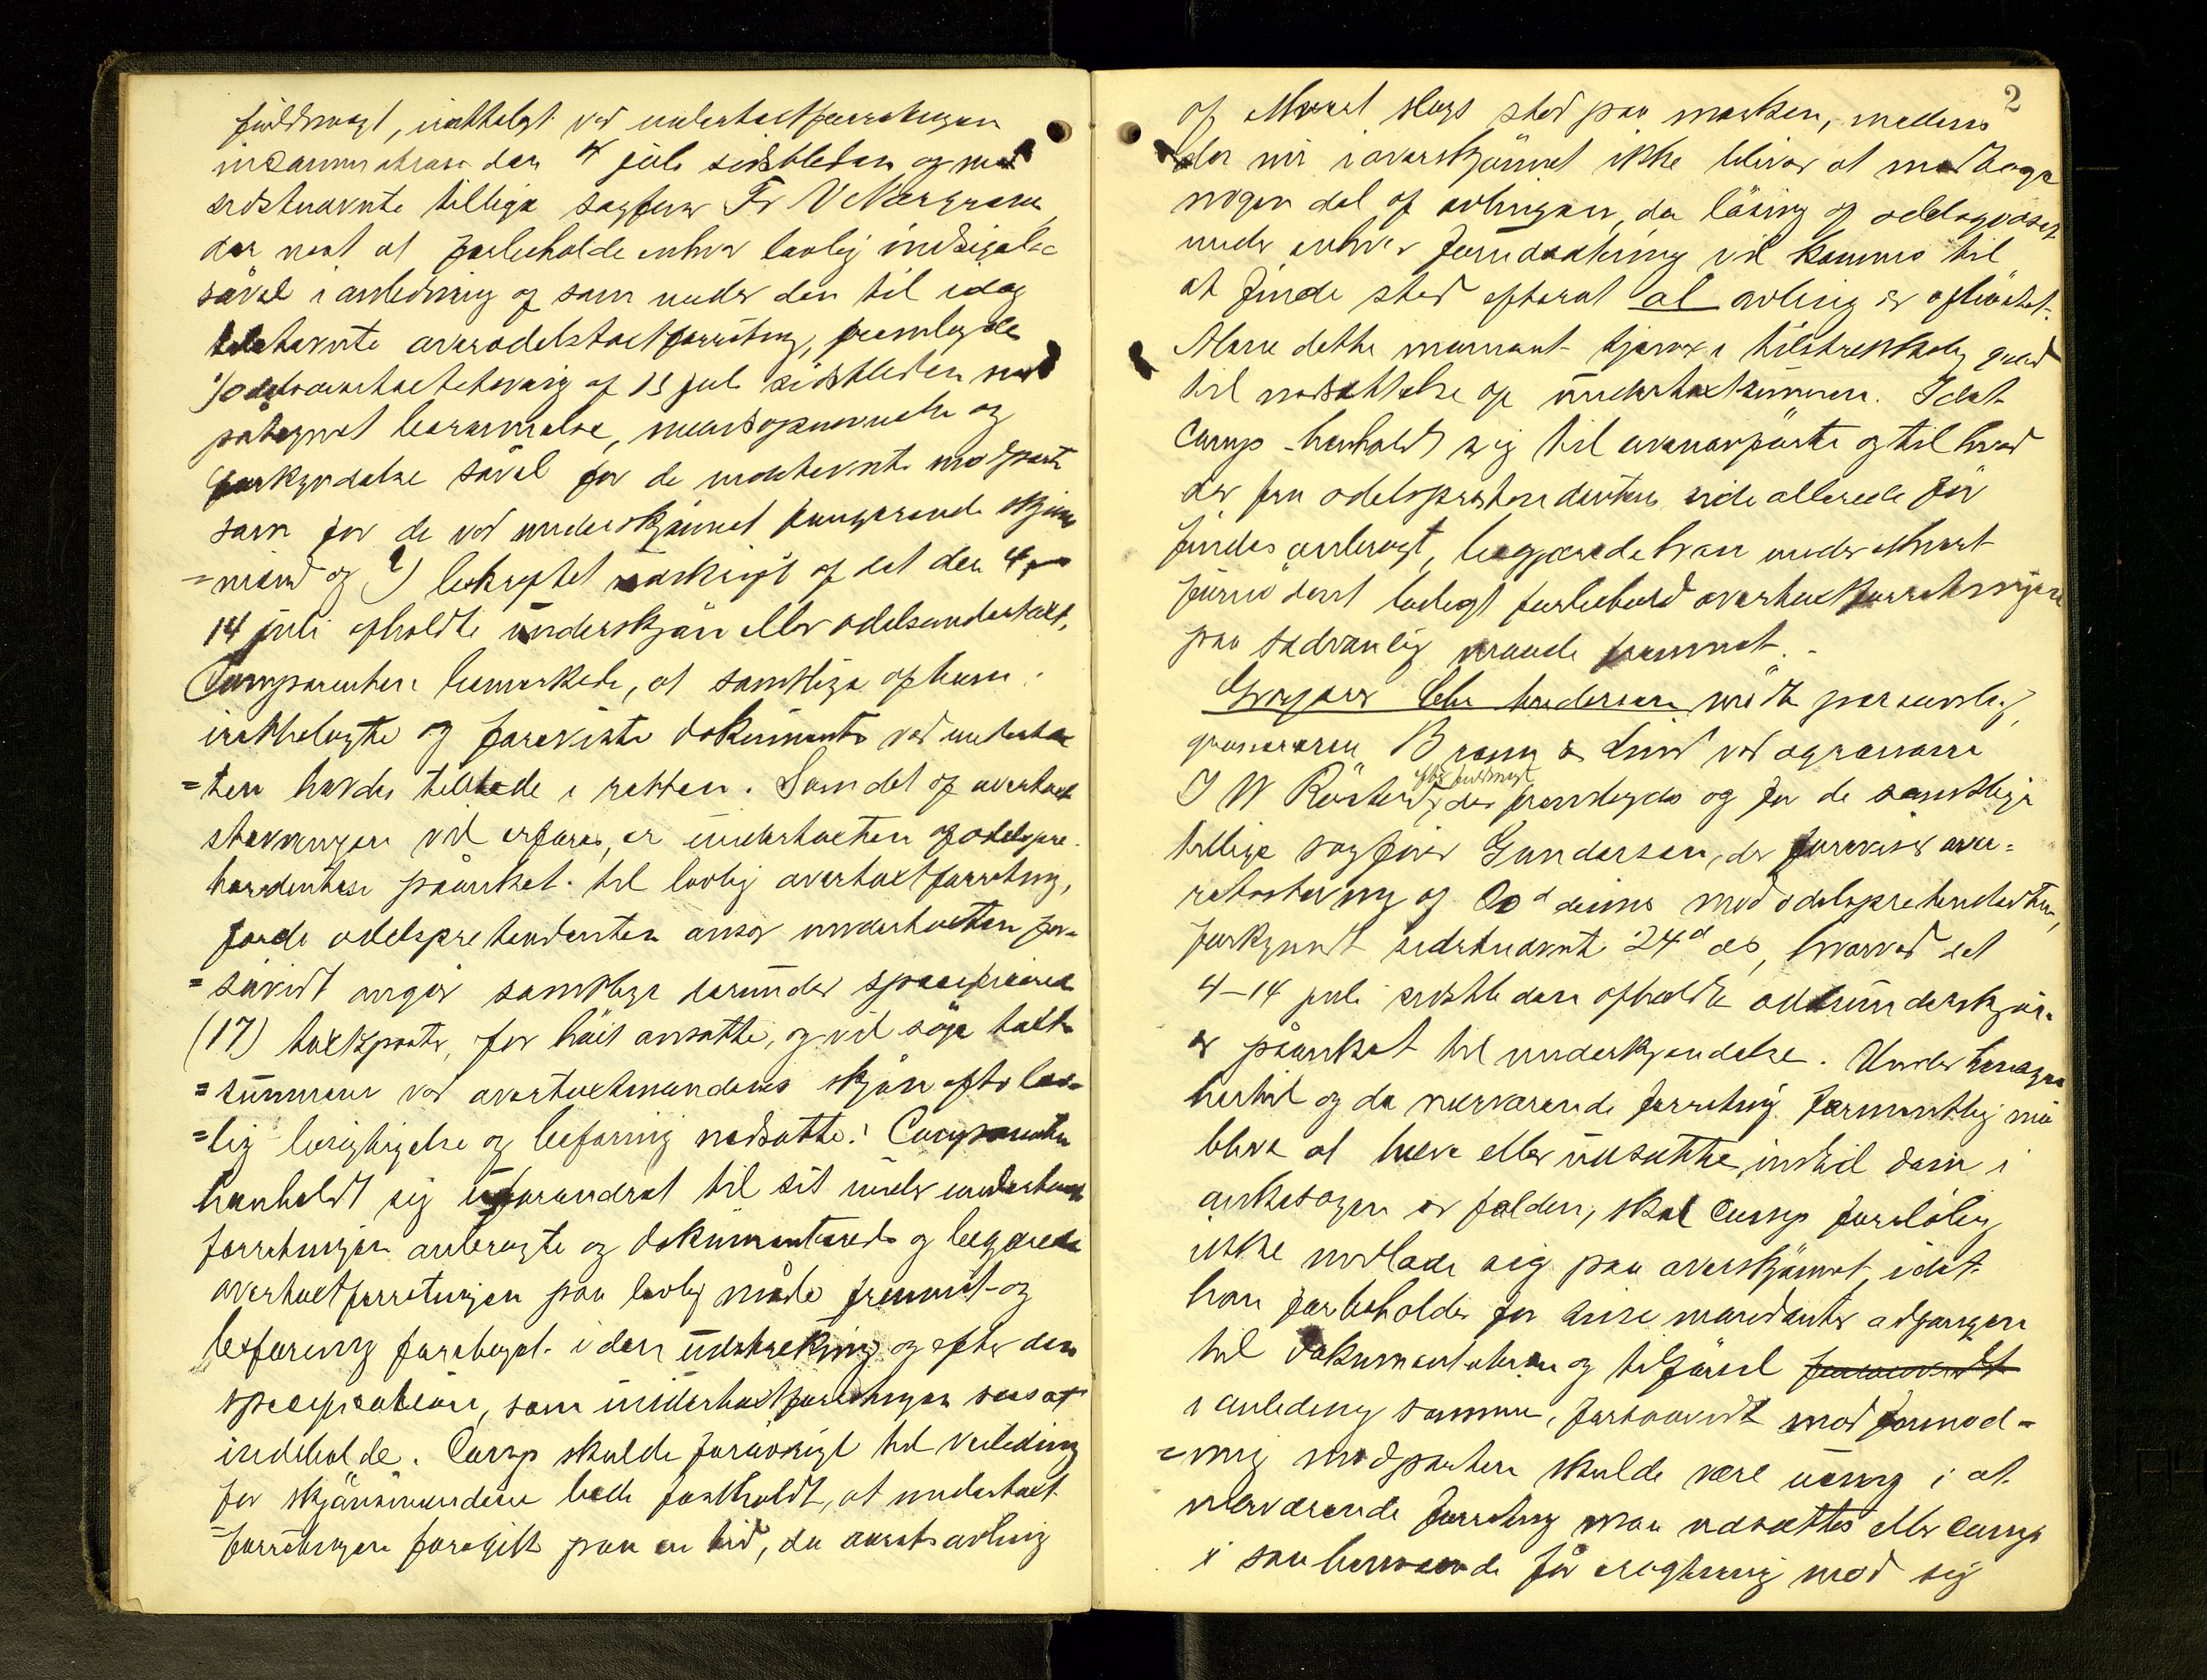 fuldmagt, irættelagt ved undertaxtforretningen
den 4 juli sidstleden og med
sidstnævnte tillige sagfører Fr
der næst at forbeholde enhver lovlig indsigelse
såvel i anledning af som under den til idag
berammede overodelstaxtforretning, fremlagde
1) odelsovertaxtstevning af 13 juli sidstleden med
påtegnet berammelse, mandsopnævnelse og
forkyndelse såvel for de indstevnte modparter
som for de ved underskjønnet fungerende skjøns
=mænd og 2) bekræftet udskrift af det den 4 –
14 juli afholdte underskjøn eller odelsundertaxt.
Comparenten bemærkede, at samtlige af ham
irættelagte og foreviste dokumenter ved undertax
=ten havdes tilstede i retten. Som det af overtaxt
stevningen vil erfares, er undertaxten af odelspre-
tendenten påanket til lovlig overtaxtforretning,
fordi odelspretendenten anser undertaxten for-
=såvidt angår samtlige derunder specificerede
(17) taxtposter, for høit ansatte, og vil søge taxt-
=summen ved overtaxtmændenes skjøn efter lov-
=lig besigtigelse og befaring nedsatte. Comparenten
henholdt sig uforandret til sit under undertaxt
forretningen anbragte og dokumenterede og begjærede
overtaxtforretningen paa lovlig måde fremmet og
befaring foretaget i den udstrækning og efter den
specification, som undertaxtforretningen sees at
indeholde. Comp skulde forøvrigt til veiledning
for skjønsmændene have fastholdt, at undertaxt
=forretningen foregik paa en tid, da årets avling
2
af slags stod paa marken, medens
der nu i overskjønnet ikke bliver at medtage
nogen del af avlingen, da løsning af odelsgodset
under enhver forudsætning vil komme til
at finde sted efterat al avling er afhøstet.
Alene dette moment tjener i tilstrækkelig grad
til nedsættelse af undertaxtsummen. Idet
Comp henholdt sig til ovenanførte og til hvad
der fra odelspretendentens side allerede før
findes anbragt, begjærede han under ethvert
fornødent lovligt forbehold overtaxtforretningen
paa sædvanlig maade fremmet. -
møtte personlig,
B & Lund ved
I W efter fuldmagt, der fremlagdes og for de samtlige
tillige sagfører Gundersen, der foreviser over=
retsstevning af 20d denne mod odelspretendenten,
forkyndt sidstnævnte 24d ds, hvorved det
4–14 juli sidstleden afholdte odelsunderskjøn
er påanket til underkjendelse. Under henvisning
hertil og da nærværende forretning formentlig må
blive at hæve eller udsætte, indtil dom i
ankesagen er falden, skal Comp foreløbig
ikke indlade sig paa overskjønnet, idet
han forbeholder for sine mandanter adgangen
til dokumentation og tilførsel
i anledning samme, forsaavidt mod formod-
=ning modparten skulde være uenig i at
nærværende forretning maa udsættes eller Comp
i saa henseende får rettens mod sig